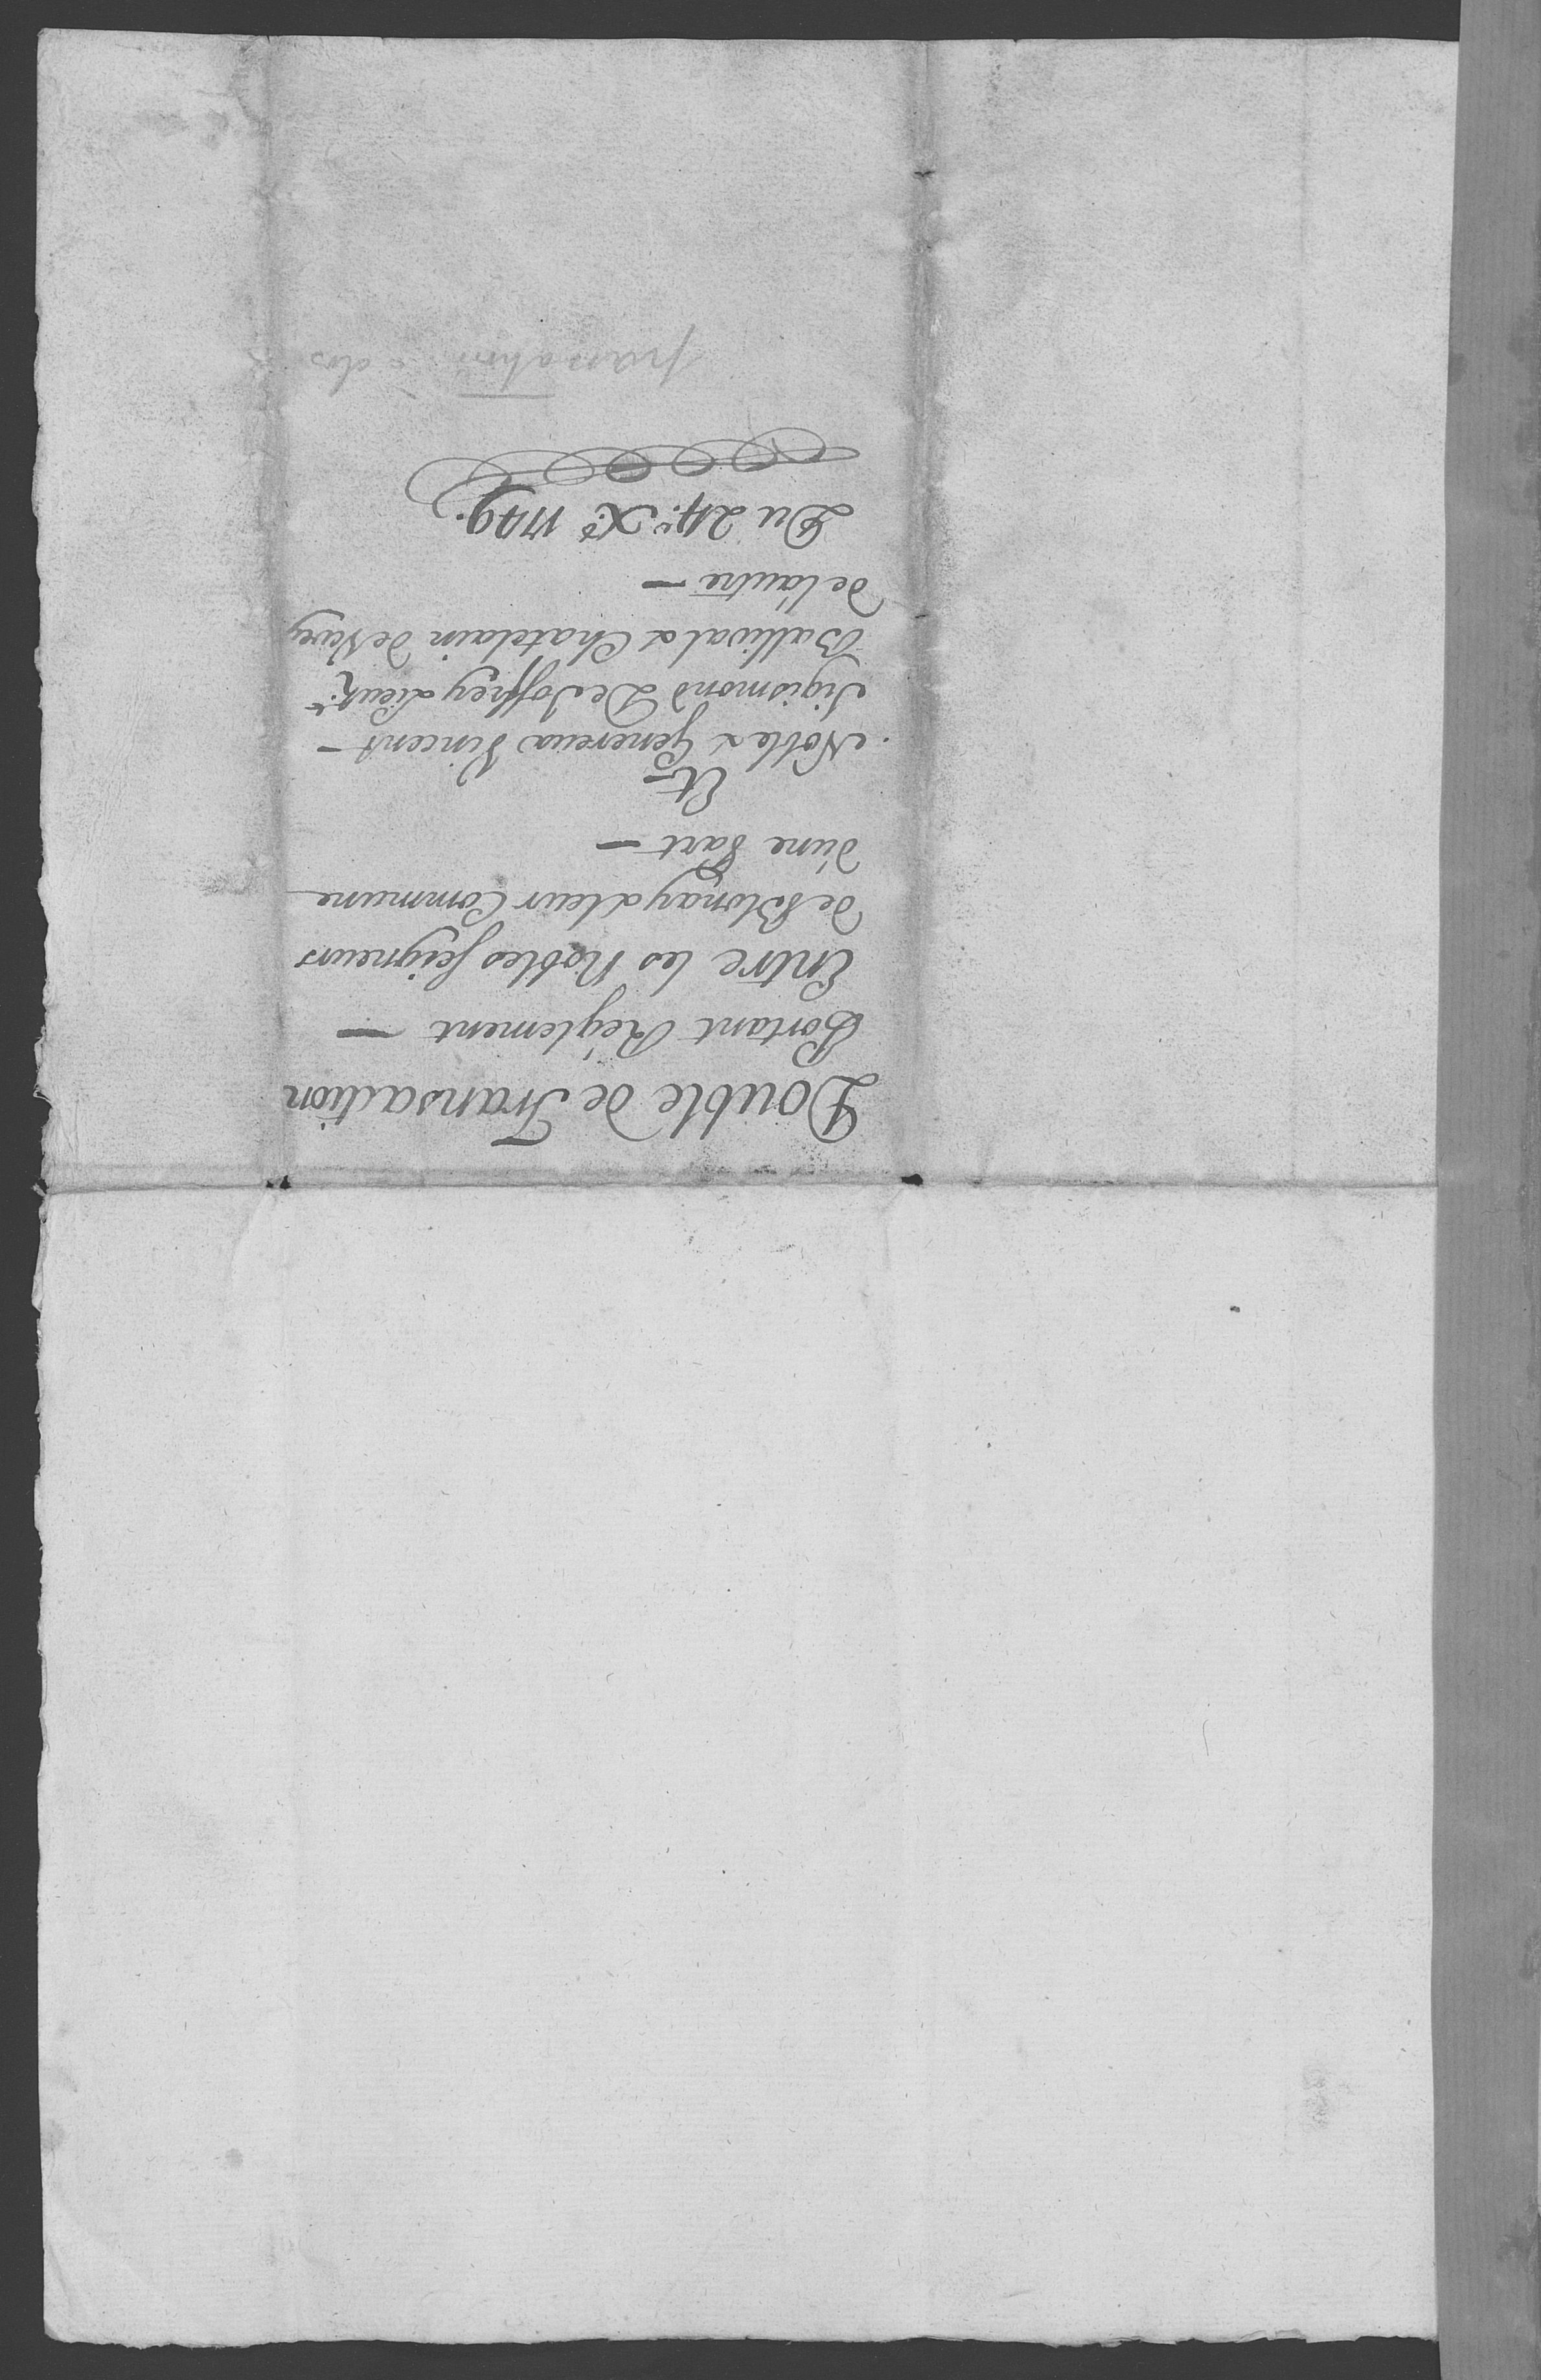 Double de Transaction
Portant Réglement —
Entre les Nobles seigneurs
de Blonay & leur Commune
d'une Part —
Et
Noble & Genereux Vincent —
Sigismond De Joffrey Lieut.t
Ballival & Chatelain de Vevey
de l'autre —
Du 24.e X.e 1749.